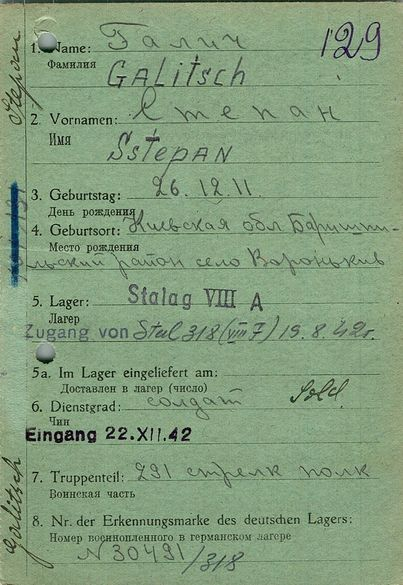 129
1. Name: Галич
Фамилия
GALitsch
2. Vornamen: Степан
Имя
SstEPAN
3. Geburtstag: 26.12.11.
День рождения
4. Geburtsort: Киевская обл Баришпи-
Место рождения
льский район село Вороньків
5. Lager: Stalag VIII A
Лагер
Zugang von Stal 318 (VIII F) 19.8.42г.
5a. Im Lager eingeliefert am:
Доставлен в лагер (число)
6. Dienstgrad: солдат Sold
Чин
Eingang 22.XII.42
7. Truppenteil: 291 стрелк полк
Воинская часть
8. Nr. der Erkennungsmarke des deutschen Lagers:
Номер военнопленного в германском лагере
N 30491/318
Stepan
Galitsch